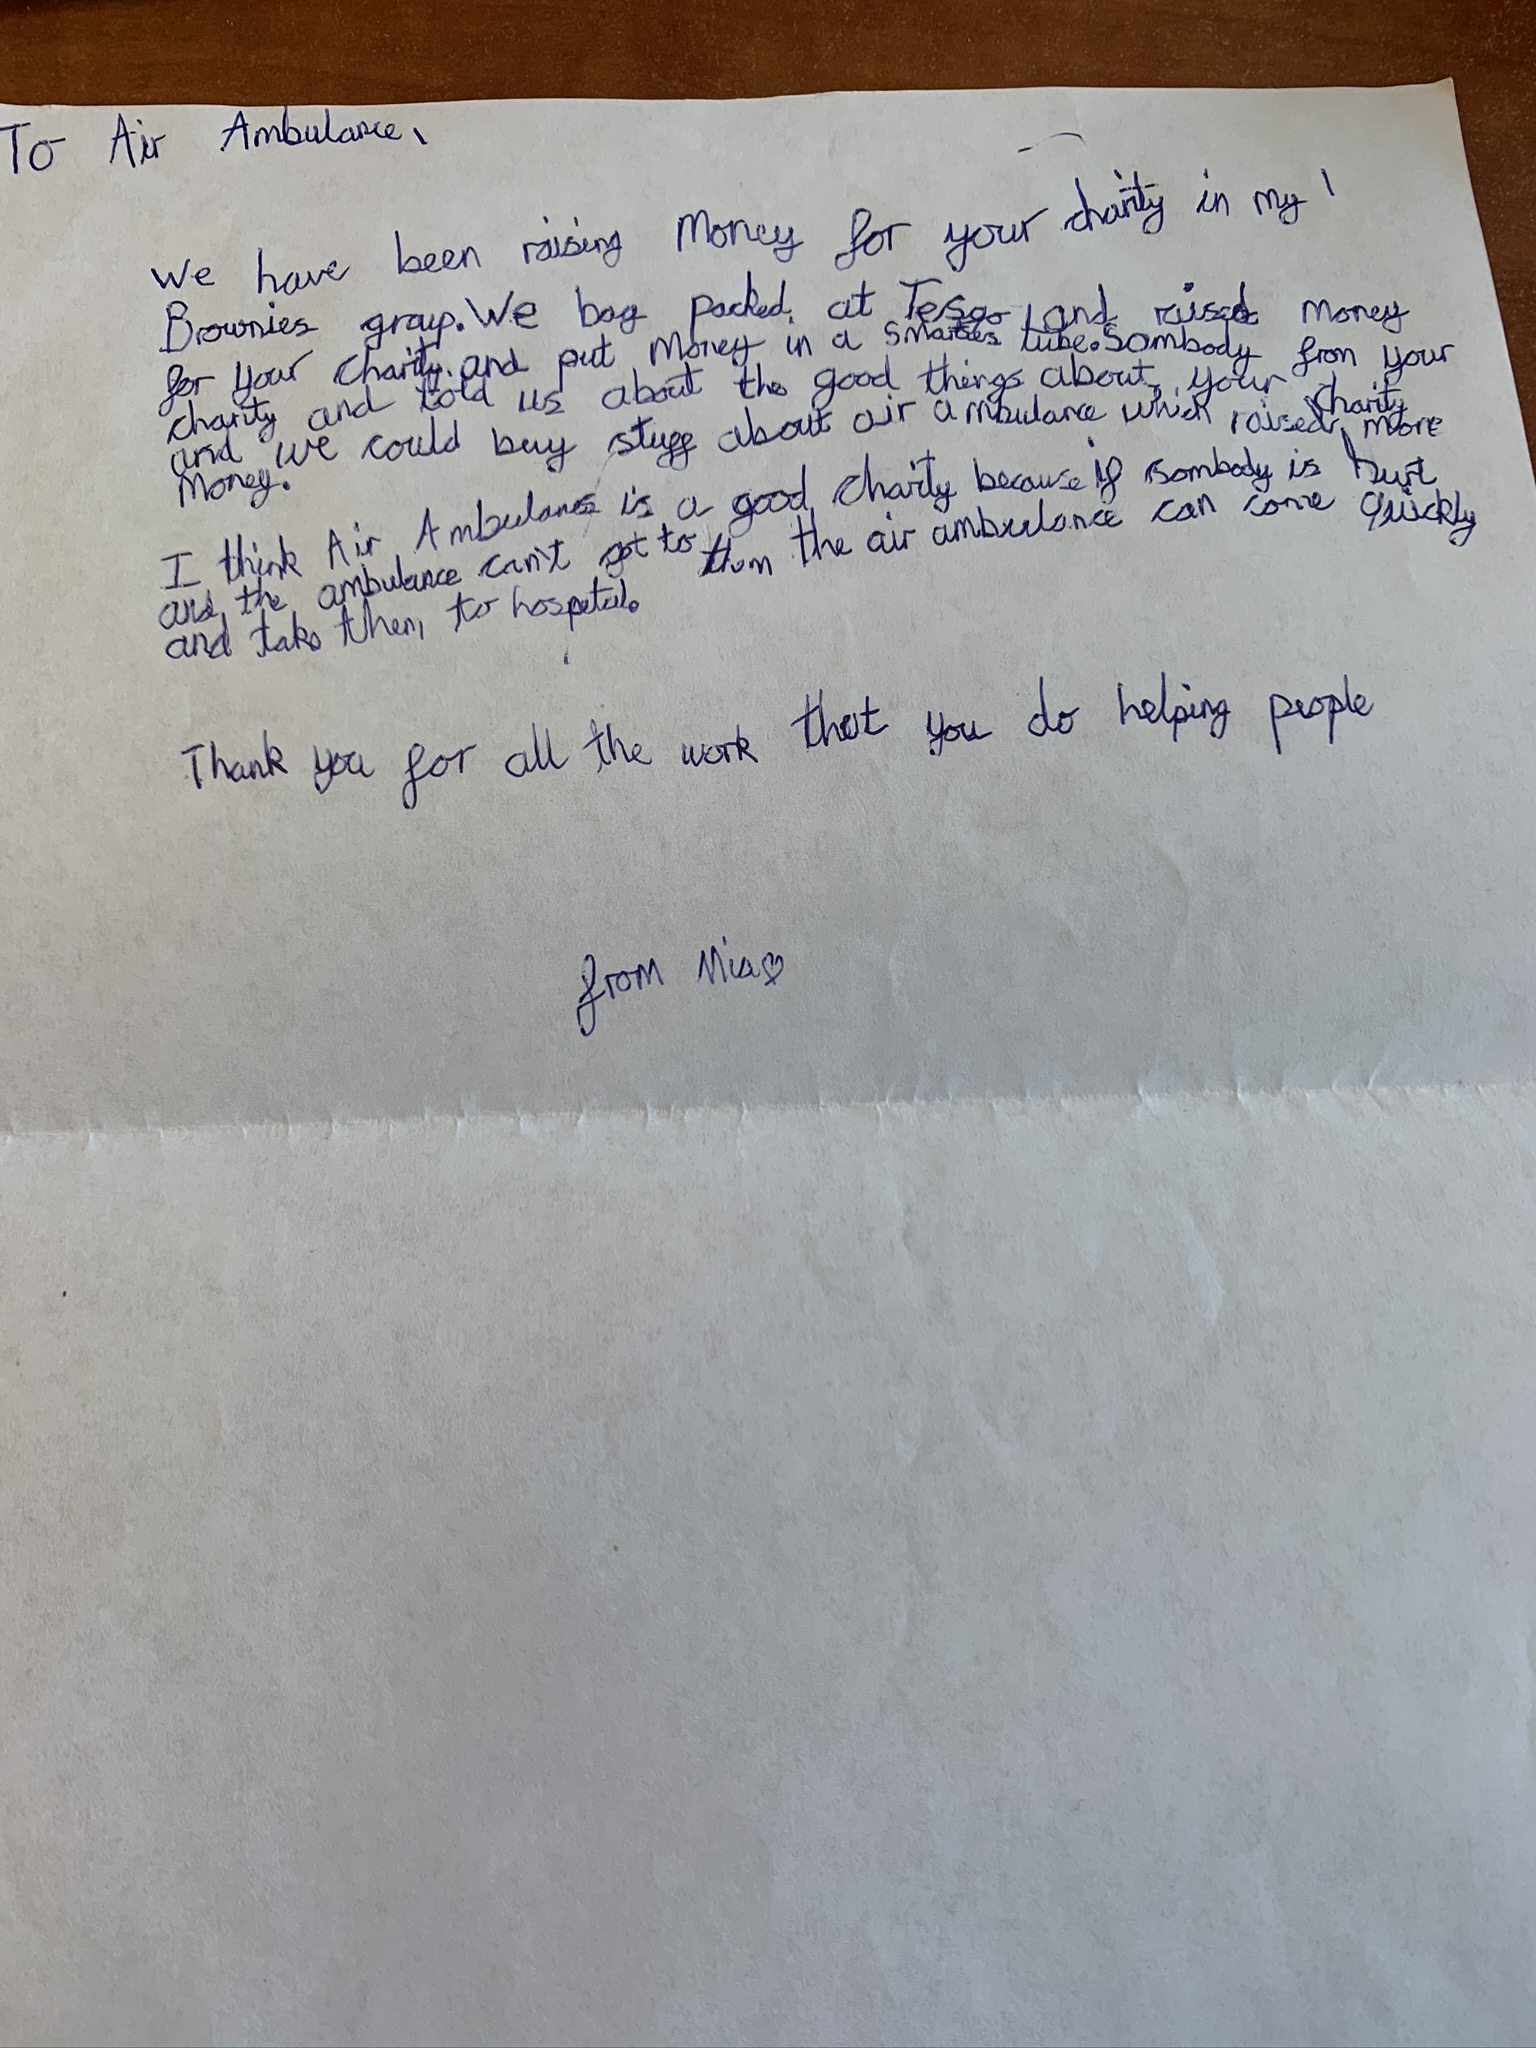 To Air Ambulance,
We have been raising Money for your charity in my
Brownies group. We bag packed at Tesco and raised money
for your charity and put money in a smarties tube. Sombody from your
charity and told us about the good things about your charity
and we could buy stuff about air ambulance which raised more
money.
I think Air Ambulance is a good charity because if sombody is hurt
and the ambulance can't get to them the air ambulance can come quickly
and take them to hospital.
Thank you for all the work that you do helping people
from Mia♡